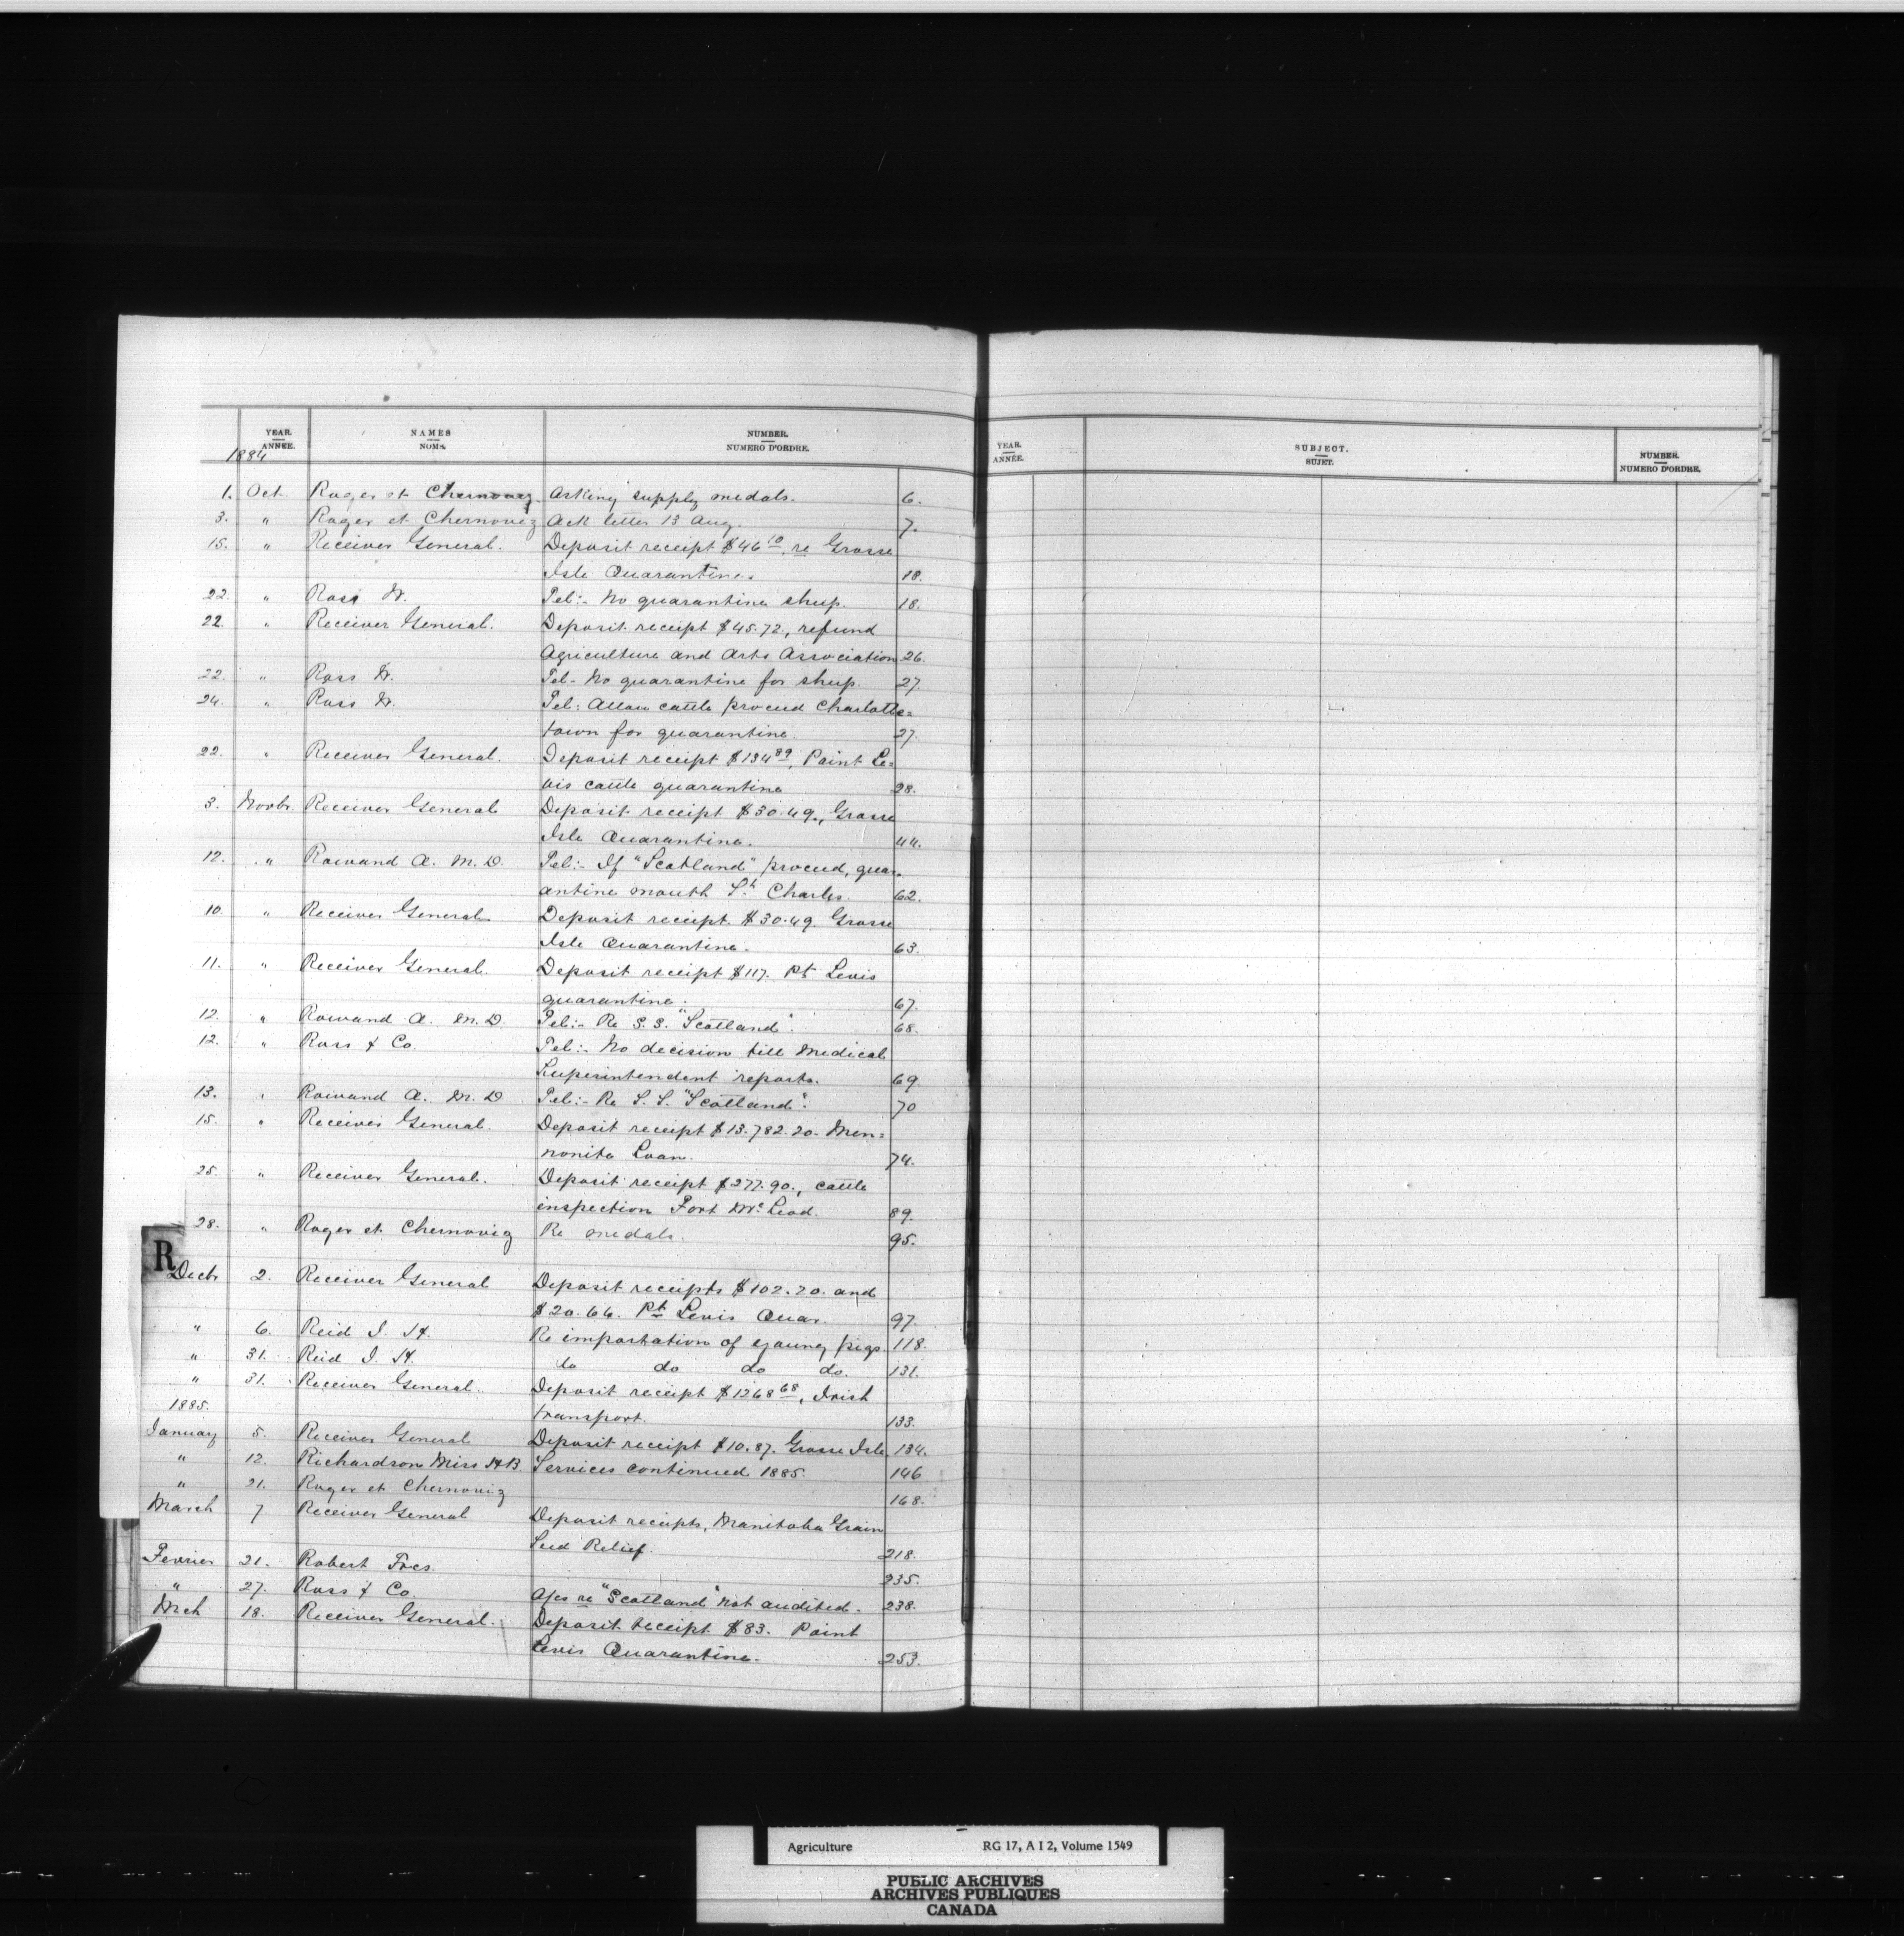 YEAR.
ANNÉE.
NAMES
NOMS.
NUMBER.
NUMERO D'ORDRE.
1884
1. Oct. Roger et Chernoviz. Asking supply medals. 6.
3. " Roger et Chernoviz Ack letter 13 Aug. 7.
15. " Receiver General. Deposit receipt $46 10, re Grosse
Isle Quarantine. 18.
22. " Ross W. Tel:- No quarantine sheep. 18.
22. " Receiver General. Deposit receipt $45.72, refund
Agriculture and Arts Association 26.
22. " Ross W. Tel- No quarantine for sheep. 27.
24. " Ross W. Tel: Allow cattle proceed Charlotte=
town for quarantine. 27.
22. " Receiver General. Deposit receipt $134 89, Point Le=
vis cattle quarantine 28.
3. Novbr. Receiver General Deposit receipt $30.49, Grosse
Isle Quarantine. 44.
12. " Rowand A. M. D. Tel:- If "Scotland" proceed, quar-
antine mouth St Charles. 62.
10. " Receiver General Deposit receipt $30.49. Grosse
Isle Quarantine. 63.
11. " Receiver General. Deposit receipt $117. Pt Levis
quarantine. 67.
12. " Rowand A. M. D. Tel:- Re S. S. "Scotland". 68.
12. " Ross & Co. Tel:- No decision till Medical
Superintendent reports. 69.
13. " Rowand A. M. D Tel:- Re S. S. "Scotland". 70
15. " Receiver General. Deposit receipt $13.782.20. Men=
nonite Loan. 74.
25. " Receiver General. Deposit receipt $277.90., cattle
inspection Fort McLeod. 89.
28. " Roger et Chernoviz Re medals. 95.
R
Decbr 2. Receiver General Deposit receipts $102.70. and
$20.66. Pt Levis Quar. 97.
" 6. Reid J. H. Re importation of young pigs. 118.
" 31. Reid J. H. do do do do. 131.
" 31. Receiver General. Deposit receipt $1268 68, Irish
1885. transport. 133.
January 5. Receiver General Deposit receipt $10.87. Grosse Isle 134.
" 12. Richardson Miss H.B. Services continued 1885. 146
" 21. Roger et Chernoviz 168.
March 7. Receiver General Deposit receipts, Manitoba Grain
Seed Relief. 218.
Fevrier 21. Robert Fres. 235.
" 27. Ross & Co. A/cs re "Scotland" not audited. 238.
Mch 18. Receiver General. Deposit receipt $83. Point
Levis Quarantine. 253.
YEAR.
ANNÉE.
SUBJECT.
SUJET.
NUMBER.
NUMERO D'ORDRE.
Agriculture RG 17, A I 2, Volume 1549
PUBLIC ARCHIVES
ARCHIVES PUBLIQUES
CANADA